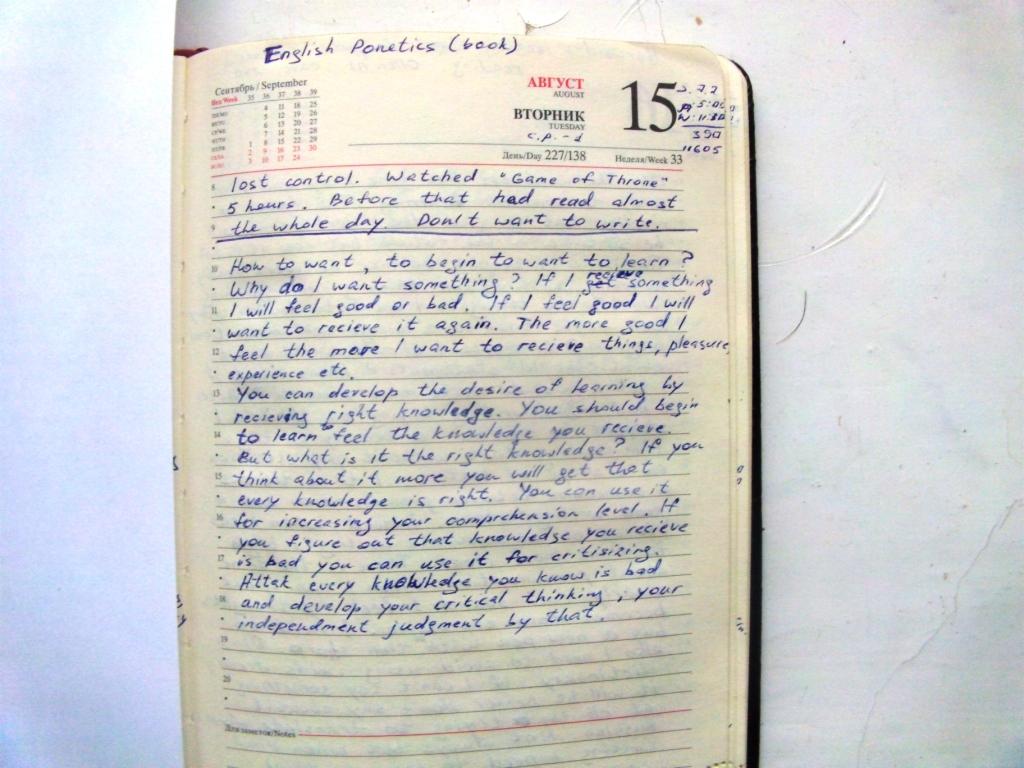 English Ponetics (book)
Сентябрь / September
Нед/Week 35 36 37 38 39
4 11 18 25
5 12 19 26
6 13 20 27
7 14 21 28
1 8 15 22 29
2 9 16 23 30
3 10 17 24
АВГУСТ
AUGUST
ВТОРНИК
TUESDAY
c.p. - 1
15
День/Day 227/138
Неделя/Week 33
390
11605
8 lost control. Watched "Game of Throne"
5 hours. Before that had read almost
9 the whole day. Don't want to write.
10 How to want, to begin to want to learn?
Why do I want something? If I recieve something
11 I will feel good or bad. If I feel good I will
want to recieve it again. The more good I
12 feel the more I want to recieve things, pleasure,
experience etc.
13 You can develop the desire of learning by
recieving right knowledge. You should begin
14 to learn to feel the knowledge you recieve.
But what is it the right knowledge? If you
15 think about it more you will get that
every knowledge is right. You can use it
16 for increasing your comprehension level. If
you figure out that knowledge you recieve
17 is bad you can use it for critisizing.
Attak every knowledge you know is bad
18 and develop your critical thinking, your
independment judgment by that.
19
20
Для заметок/Notes